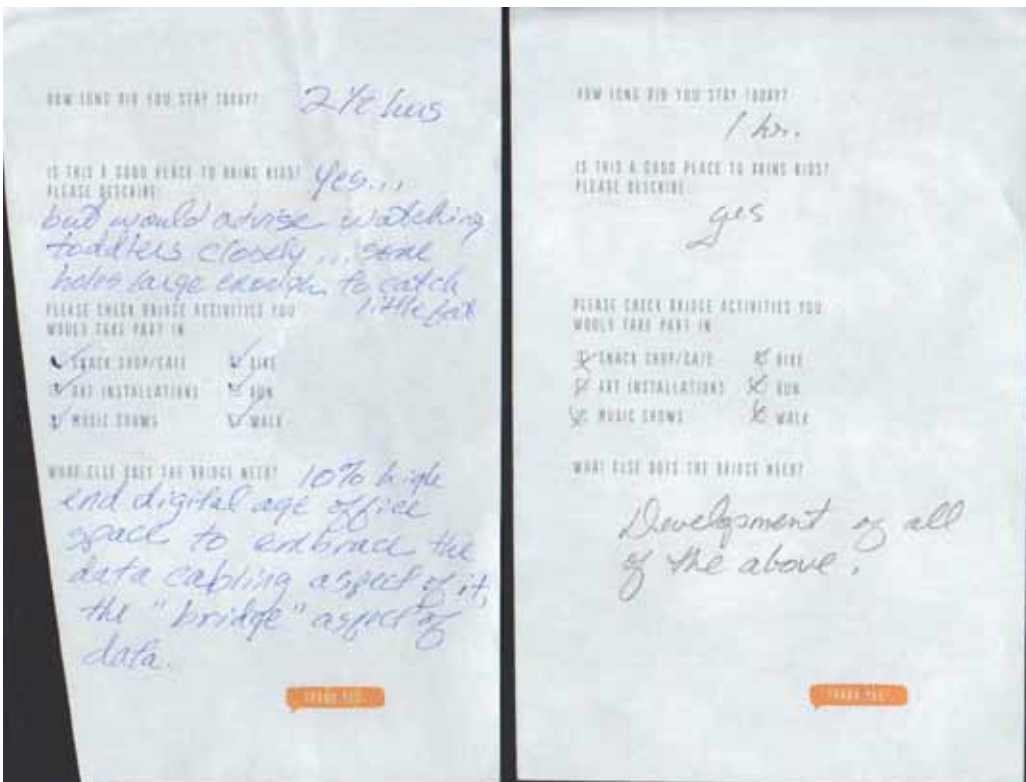 HOW LONG DID YOU STAY TODAY? 2½ hrs
IS THIS A GOOD PLACE TO BRING KIDS? Yes...
PLEASE DESCRIBE:
but would advise watching
toddlers closely... some
holes large enough to catch
little
PLEASE CHECK BRIDGE ACTIVITIES YOU
WOULD TAKE PART IN
SNACK SHOP/CAFE BIKE
ART INSTALLATIONS RUN
MUSIC SHOWS WALK
WHAT ELSE DOES THE BRIDGE NEED? 10% high
end digital age office
space to embrace the
data cabling aspect of it,
the "bridge" aspect of
data.
THANK YOU
HOW LONG DID YOU STAY TODAY?
1 hr.
IS THIS A GOOD PLACE TO BRING KIDS?
PLEASE DESCRIBE:
yes
PLEASE CHECK BRIDGE ACTIVITIES YOU
WOULD TAKE PART IN
SNACK SHOP/CAFE BIKE
ART INSTALLATIONS RUN
MUSIC SHOWS WALK
WHAT ELSE DOES THE BRIDGE NEED?
Development of all
of the above.
THANK YOU